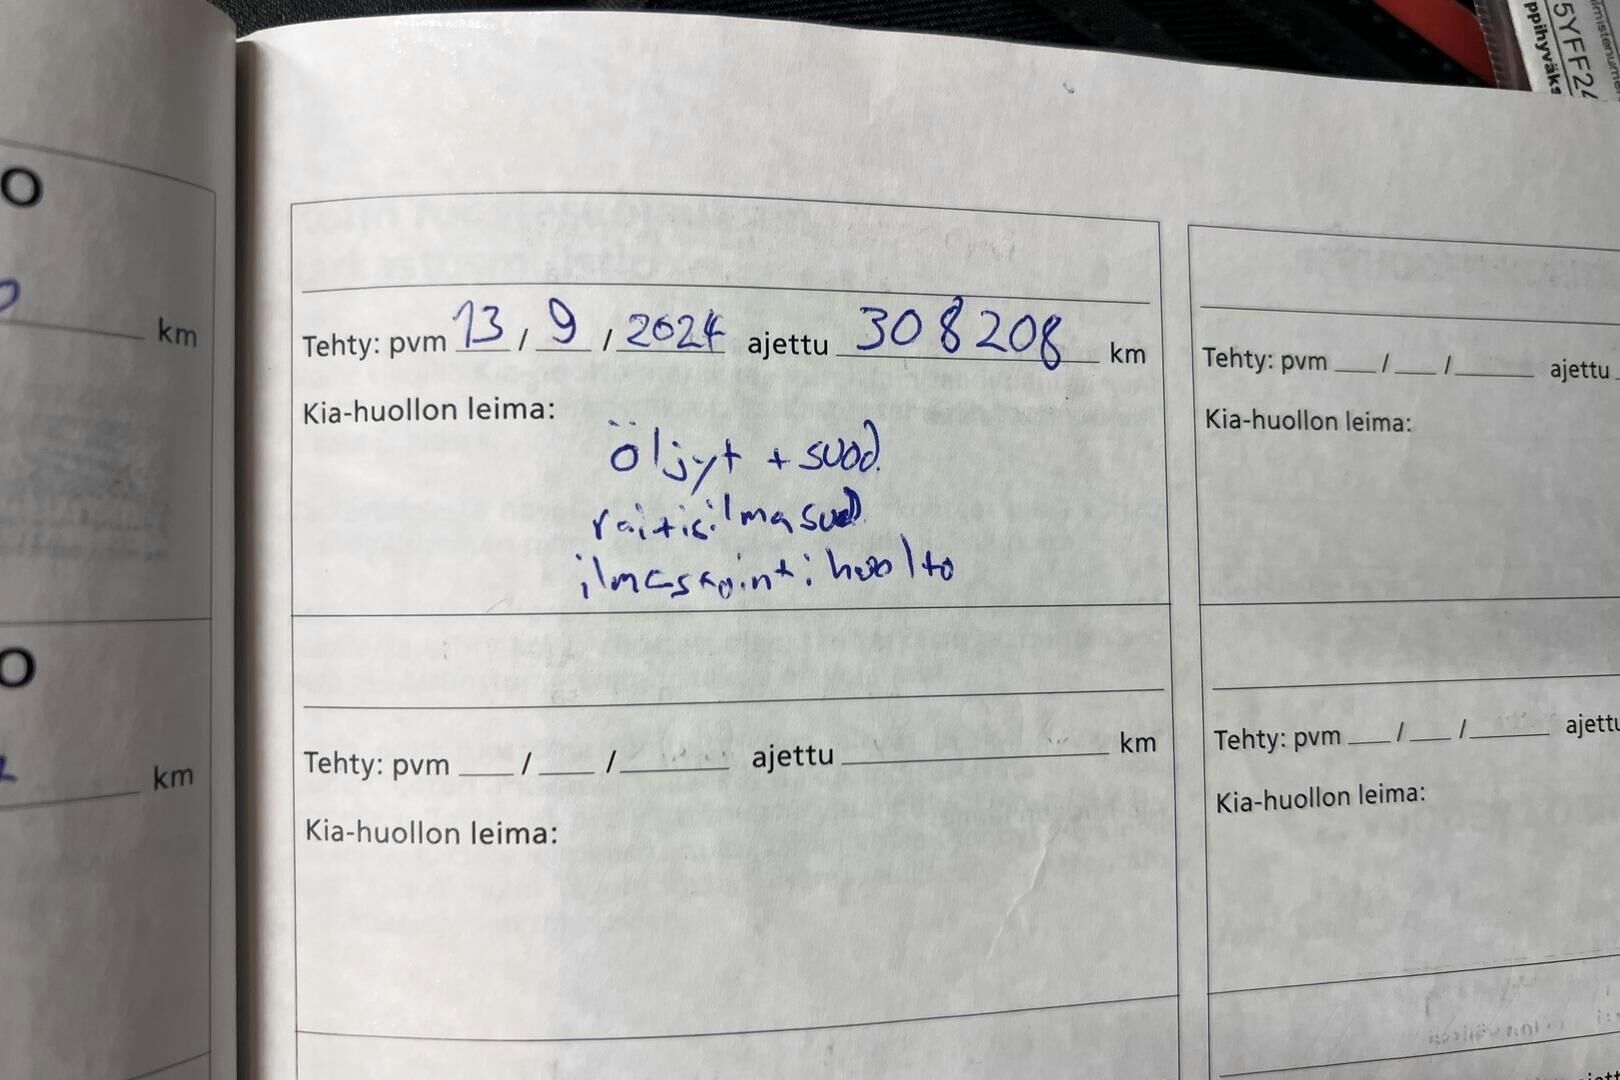 5YFF24
ppihyväks
O
km
O
km
Tehty: pvm 13 / 9 / 2024 ajettu 308208 km
Kia-huollon leima:
öljyt + suod.
raitisilmasuod.
ilmastointi huolto
Tehty: pvm ___ / ___ / ______ ajettu ______ km
Kia-huollon leima:
Tehty: pvm ___ / ___ / ______ ajettu
Kia-huollon leima:
Tehty: pvm ___ / ___ / ______ ajettu
Kia-huollon leima: